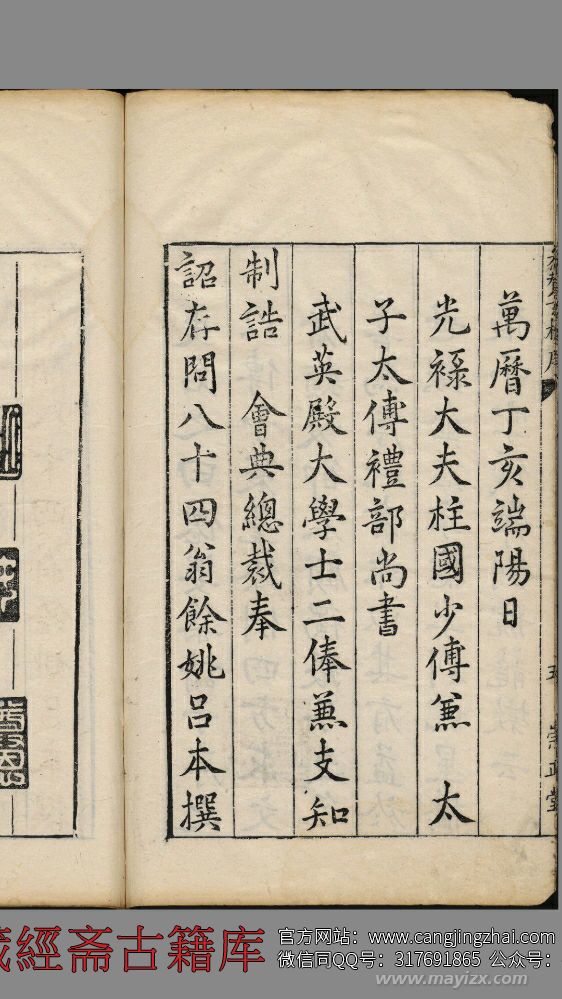 萬曆丁亥端陽日
光祿大夫柱國少傅兼 太
子太傅禮部尚書
武英殿大學士二俸兼支知
制誥 會典總裁奉
詔存問八十四翁餘姚呂本撰
崇正堂
藏經斋古籍库
官方网站：www.cangjingzhai.com
微信同QQ号：317691865 公众号：
www.mayizx.com